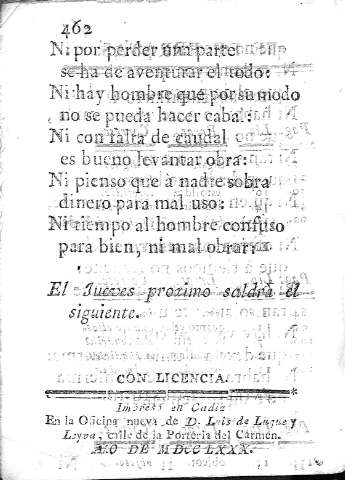 462
Ni por perder una parte
se ha de aventurar el todo:
Ni hay hombre que por su modo
no se pueda hacer cabal:
Ni con falta de caudal
es bueno levantar obra:
Ni pienso que á nadie sobra
dinero para mal uso:
Ni tiempo al hombre confuso
para bien, ni mal obrar:
El Jueves proximo saldrá el
siguiente.
CON LICENCIA.
Impreso en Cadiz
En la Oficina nueva de D. Luis de Luque y
Leyva, calle de la Porteria del Carmen.
AÑO DE MDCCLXXX.